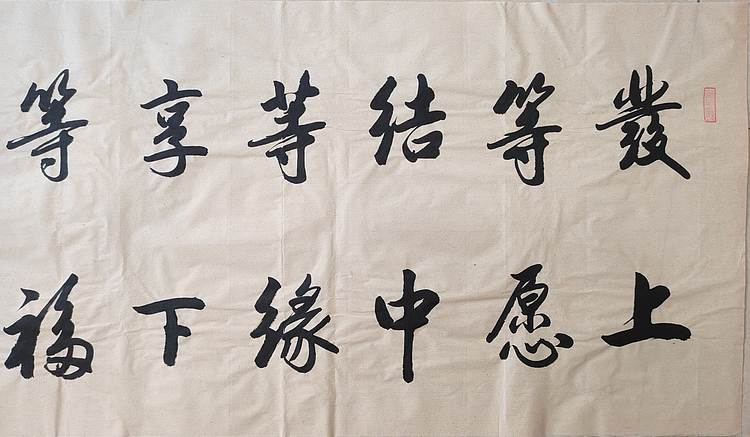 發上
等愿
结中
等缘
享下
等福